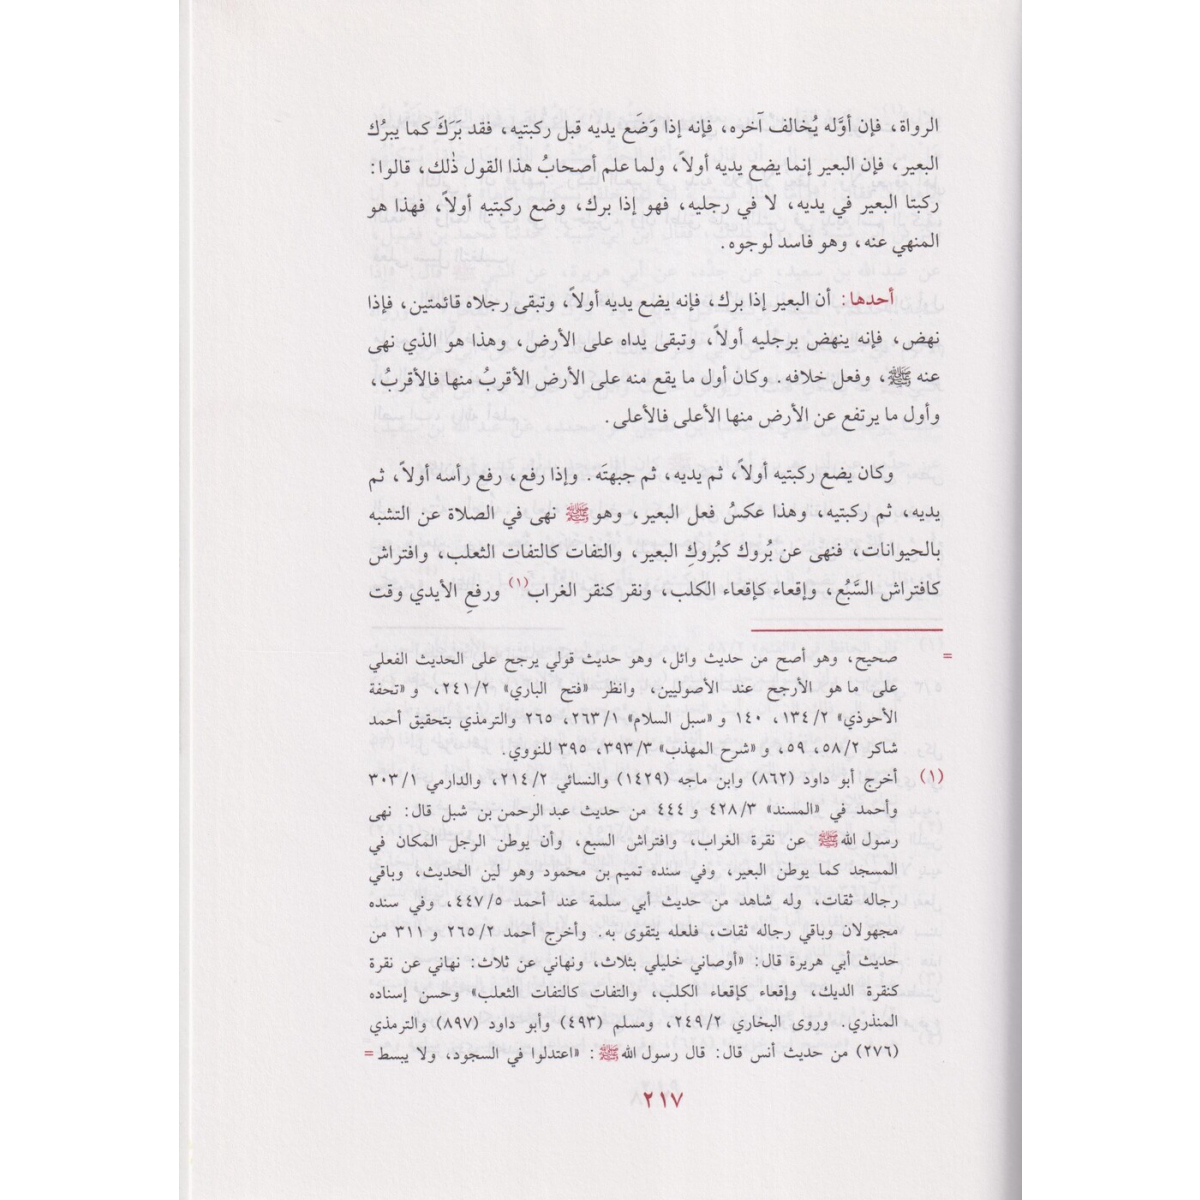 الرواة، فإن أوَّله يُخالف آخره، فإنه إذا وَضَع يديه قبل ركبتيه، فقد بَرَكَ كما يبرُك
البعير، فإن البعير إنما يضع يديه أولاً، ولما علم أصحابُ هذا القول ذٰلك، قالوا:
ركبتا البعير في يديه، لا في رجليه، فهو إذا برك، وضع ركبتيه أولاً، فهذا هو
المنهي عنه، وهو فاسد لوجوه.
أحدها: أن البعير إذا برك، فإنه يضع يديه أولاً، وتبقى رجلاه قائمتين، فإذا
نهض، فإنه ينهض برجليه أولاً، وتبقى يداه على الأرض، وهذا هو الذي نهى
عنه ﷺ، وفعل خلافه. وكان أول ما يقع منه على الأرض الأقربُ منها فالأقربُ،
وأول ما يرتفع عن الأرض منها الأعلى فالأعلى.
وكان يضع ركبتيه أولاً، ثم يديه، ثم جبهتَه. وإذا رفع، رفع رأسه أولاً، ثم
يديه، ثم ركبتيه، وهذا عكسُ فعل البعير، وهو ﷺ نهى في الصلاة عن التشبه
بالحيوانات، فنهى عن بُروك كبُروكِ البعير، والتفات كالتفات الثعلب، وافتراش
كافتراش السَّبُع، وإقعاء كإقعاء الكلب، ونقر كنقر الغراب(١) ورفعِ الأيدي وقت
= صحيح، وهو أصح من حديث وائل، وهو حديث قولي يرجح على الحديث الفعلي
على ما هو الأرجح عند الأصوليين، وانظر «فتح الباري» ٢٤١/٢، و «تحفة
الأحوذي» ١٣٤/٢، ١٤٠ و «سبل السلام» ٢٦٣/١، ٢٦٥ والترمذي بتحقيق أحمد
شاكر ٥٨/٢، ٥٩، و «شرح المهذب» ٣٩٣/٣، ٣٩٥ للنووي.
(١) أخرج أبو داود (٨٦٢) وابن ماجه (١٤٢٩) والنسائي ٢١٤/٢، والدارمي ٣٠٣/١
وأحمد في «المسند» ٤٢٨/٣ و ٤٤٤ من حديث عبد الرحمن بن شبل قال: نهى
رسول الله ﷺ عن نقرة الغراب، وافتراش السبع، وأن يوطن الرجل المكان في
المسجد كما يوطن البعير، وفي سنده تميم بن محمود وهو لين الحديث، وباقي
رجاله ثقات، وله شاهد من حديث أبي سلمة عند أحمد ٤٤٧/٥، وفي سنده
مجهولان وباقي رجاله ثقات، فلعله يتقوى به. وأخرج أحمد ٢٦٥/٢ و ٣١١ من
حديث أبي هريرة قال: «أوصاني خليلي بثلاث، ونهاني عن ثلاث: نهاني عن نقرة
كنقرة الديك، وإقعاء كإقعاء الكلب، والتفات كالتفات الثعلب» وحسن إسناده
المنذري. وروى البخاري ٢٤٩/٢، ومسلم (٤٩٣) وأبو داود (٨٩٧) والترمذي
(٢٧٦) من حديث أنس قال: قال رسول الله ﷺ: «اعتدلوا في السجود، ولا يبسط =
٢١٧